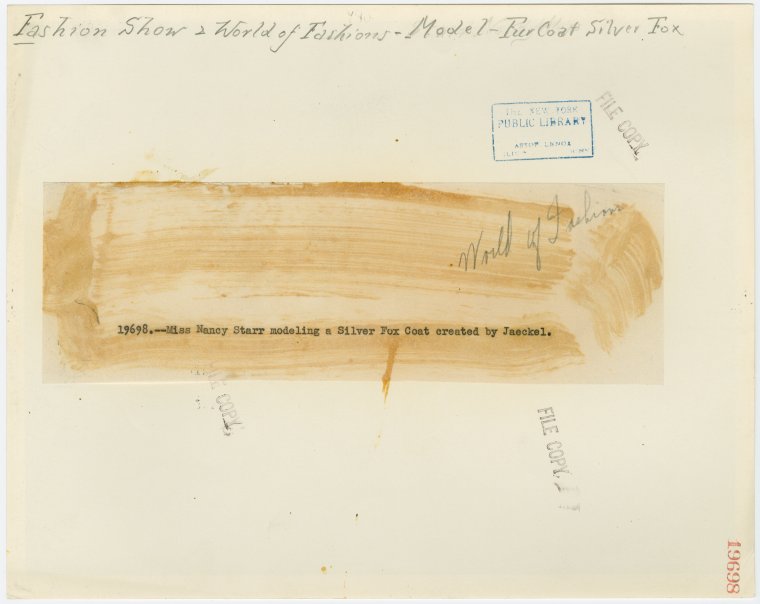 Fashion Show & World of Fashions - Model - Fur Coat Silver Fox
FILE COPY.
THE NEW YORK
PUBLIC LIBRARY
ASTOR LENOX
World of Fashions
19698.--Miss Nancy Starr modeling a Silver Fox Coat created by Jaeckel.
FILE COPY.
FILE COPY.
19698